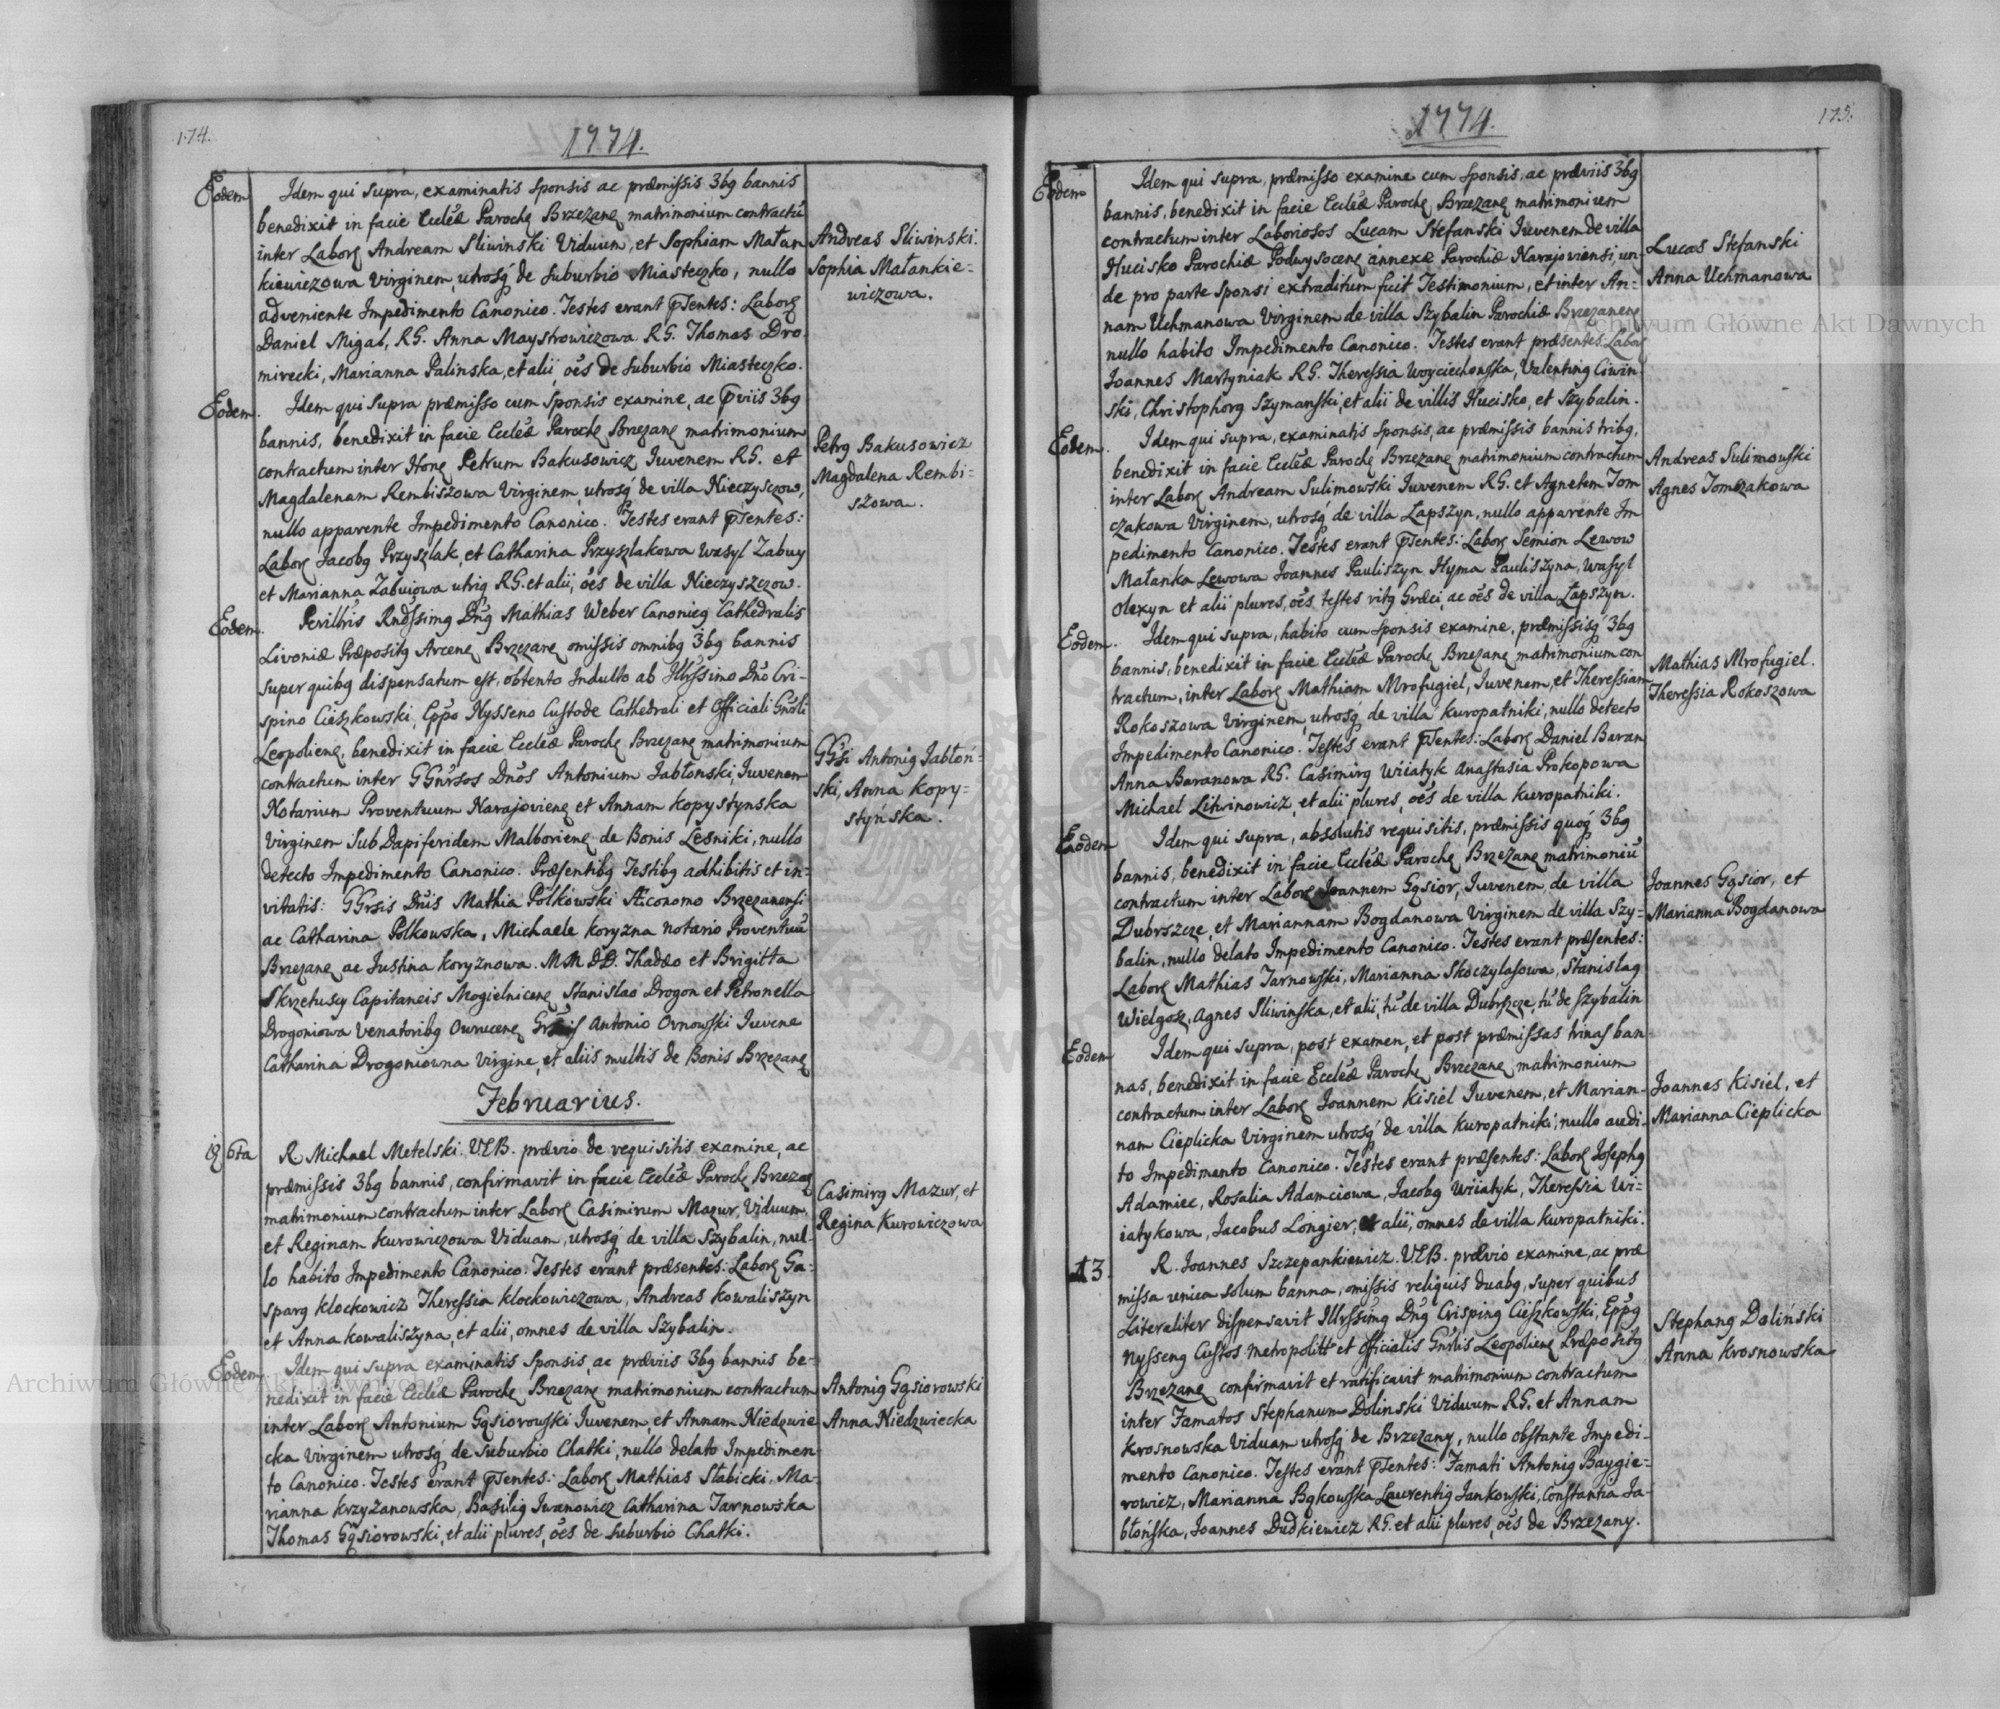 174.
1774.
Eodem
Idem qui supra, examinatis Sponsis ac præmissis 3bg bannis
benedixit in facie Eccleæ Paroche Brzezane matrimonium contractū
inter Labores Andream Sliwinski Viduum, et Sophiam Małan
kiewiczowa Virginem, utrosq́ de Suburbio Miasteczko, nullo
adveniente Impedimento Canonico. Testes erant pntes: Labores
Daniel Migal, RG. Anna Maystrowiczowa RG. Thomas Dro-
mirecki, Marianna Palinska, et alii, oẽs de Suburbio Miasteczko.
Andreas Sliwinski.
Sophia Małankie-
wiczowa.
Eodem.
Idem qui Supra præmisso cum Sponsis examine, ac pviis 3bg
bannis, benedixit in facie Eccleæ Paroche Brzezane matrimonium
contractum inter Hone Petrum Bakusowicz Iuvenem RG. et
Magdalenam Rembiszowa Virginem, utrosq́ de villa Nieczysczow,
nullo apparente Impedimento Canonico. Testes erant pntes:
Labores Jacobg Przyszlak, et Catharina Przyszlakowa Wasyl Zabuy
et Marianna Zabuiowa utrig RG. et alii, oẽs de villa Nieczyszczow.
Petrg Bakusowicz
Magdalena Rembi-
szowa.
Eodem.
Perillris Rndssimg Dñg Mathias Weber Canonicg Cathedralis
Livoniæ Præpositg Arcene Brzezane omissis omnibg 3bg bannis
super quibg dispensatum est, obtento Indulto ab Illrssimo Dño Cri-
spino Cieszkowski, Eppo Nysseno Custode Cathedrali et Officiali Gñrli
Leopoliene, benedixit in facie Eccleæ Paroche Brzezane matrimonium
contractum inter GGnrsos Dños Antonium Jabłonski, Iuvenem
Notarium Proventuum Narajoviene et Annam Kopystynska
Virginem SubDapiferidem Malboriene de Bonis Lesniki, nullo
detecto Impedimento Canonico. Præsentibg Testibg adhibitis et in-
vitatis: GGrsis Dñis Mathia Polkowski Æconomo Brzezanensi
ac Catharina Polkowska, Michaele Koryzna notario Proventuū
Brzezane ac Iustina Koryznowa. MM DD. Thadæo et Brigitta
Skrzetuscy Capitaneis Mogielnicene Stanislao Drogon et Petronella
Drogoniowa Venatoribg Owrucene Grsis Antonio Ornowski Iuvene
Catharina Drogoniowna Virgine, et aliis multis de Bonis Brzezane
GGrsi Antonig Jabłoń-
ski, Anna Kopy-
styńska.
Februarius.
ig 6ta
R. Michael Metelski. VEB. prævio de requisitis examine, ac
præmissis 3bg bannis, confirmavit in facie Eccleæ Paroche Brzezane
matrimonium contractum inter Labores Casimirum Mazur, Viduum,
et Reginam Kurowiczowa Viduam, utrosq́ de villa Szybalin, nul-
lo habito Impedimento Canonico. Testes erant præsentes: Labores Ga-
sparg Klockowicz Theressia Klockowiczowa, Andreas Kowaliszyn
et Anna Kowaliszyna, et alii, omnes de villa Szybalin.
Casimirg Mazur, et
Regina Kurowiczowa
Eodem.
Idem qui supra examinatis Sponsis ac præviis 3bg bannis be-
nedixit in facie Eccleæ Paroche Brzezane matrimonium contractum
inter Labores Antonium Gąsiorowski Iuvenem et Annam Niedzwie
cka Virginem utrosq́ de Suburbio Chatki, nullo delato Impedimen-
to Canonico. Testes erant pntes: Labores Mathias Słabicki, Ma-
rianna Krzyżanowska, Basilig Iwanowicz Catharina Tarnowska
Thomas Gąsiorowski, et alii plures, oẽs de Suburbio Chatki.
Antonig Gąsiorowski
Anna Niedzwiecka
175.
1774.
Eodem
Idem qui supra, præmisso examine cum Sponsis, ac præviis 3bg
bannis, benedixit in facie Eccleæ Paroche Brzezane matrimonium
contractum inter Laboriosos Lucam Stefanski Iuvenem de villa
Hucisko Parochiæ Podwysocene annexæ Parochiæ Narajoviensi, un-
de pro parte Sponsi extraditum fuit Testimonium, et inter An-
nam Uchmanowa Virginem de villa Szybalin Parochiæ Brzezanene
nullo habito Impedimento Canonico. Testes erant præsentes: Labores
Joannes Martyniak RG. Theressia Woyciechowska, Valenting Ciwin
ski, Christophorg Szymanski, et alii de villis Hucisko, et Szybalin.
Lucas Stefanski
Anna Uchmanowa
Eodem.
Idem qui supra, examinatis Sponsis, ac præmissis bannis tribg,
benedixit in facie Eccleæ Paroche Brzezane matrimonium contractum
inter Labores Andream Sulimowski Iuvenem RG. et Agnetem Tom
czakowa Virginem, utrosq́ de villa Lapszyn, nullo apparente Im
pedimento Canonico. Testes erant pntes: Labores Semion Lewow
Małanka Lewowa Joannes Pauliszyn Hyma Pauliszyna, Wasyl
Olexyn et alii plures, oẽs testes ritg Græci, ac oẽs de villa Łapszyn.
Andreas Sulimowski
Agnes Tomczakowa
Eodem.
Idem qui supra, habito cum Sponsis examine, præmissisq́ 3bg
bannis, benedixit in facie Eccleæ Paroche Brzezane matrimonium con
tractum, inter Labores Mathiam Mrofugiel, Iuvenem, et Theressiam
Rokoszowa Virginem, utrosq́ de villa Kuropatniki, nullo detecto
Impedimento Canonico. Testes erant pntes: Labores Daniel Baran
Anna Baranowa RG. Casimirg Wiiatyk Anastasia Prokopowa
Michael Litwinowicz, et alii plures, oẽs de villa Kuropatniki.
Mathias Mrofugiel.
Theressia Rokoszowa
Eodem
Idem qui supra, absolutis requisitis, præmissis quoq́ 3bg
bannis, benedixit in facie Eccleæ Paroche Brzezane matrimoniū
contractum inter Labores Joannem Gąsior, Iuvenem de villa
Dubrszcze, et Mariannam Bogdanowa Virginem de villa Szy-
balin, nullo delato Impedimento Canonico. Testes erant præsentes:
Labores Mathias Tarnowski, Marianna Skoczylasowa, Stanislag
Wielgosz, Agnes Sliwinska, et alii, tũ de villa Dubrszcze, tũ de Szybalin
Joannes Gąsior, et
Marianna Bogdanowa
Eodem
Idem qui supra, post examen, et post præmissas trinas ban
nas, benedixit in facie Eccleæ Paroche Brzezane matrimonium
contractum inter Labores Joannem Kisiel Iuvenem, et Marian-
nam Cieplicka Virginem utrosq́ de villa Kuropatniki, nullo audi-
to Impedimento Canonico. Testes erant præsentes: Labores Josephg
Adamiec, Rosalia Adamciowa, Jacobg Wiiatyk, Theressia Wi-
iatykowa, Jacobus Longier, et alii, omnes de villa Kuropatniki.
Joannes Kisiel, et
Marianna Cieplicka
13.
R. Joannes Szczepankiewicz. VEB. prævio examine, ac præ
missa unica solum banna, omissis reliquis duabg, super quibus
Literaliter dispensavit Illrssimg Dñg Crisping Cieszkowski, Eppg
Nysseng Custos Metropolitt et Officialis Gñrlis Leopoliene Præpositg
Brzezane confirmavit et ratificavit matrimonium contractum
inter Famatos Stephanum Dolinski Viduum RG. et Annam
Krosnowska Viduam utrosq́ de Brzezany, nullo obstante Impedi-
mento Canonico. Testes erant pntes: Famati Antonig Baygie-
rowicz, Marianna Bąkowska Laurentig Jankowski, Constantia Ja-
błońska, Joannes Dudkiewicz RG. et alii plures, oẽs de Brzezany.
Stephang Dolinski
Anna Krosnowska
Archiwum Główne Akt Dawnych
Archiwum Główne Akt Dawnych